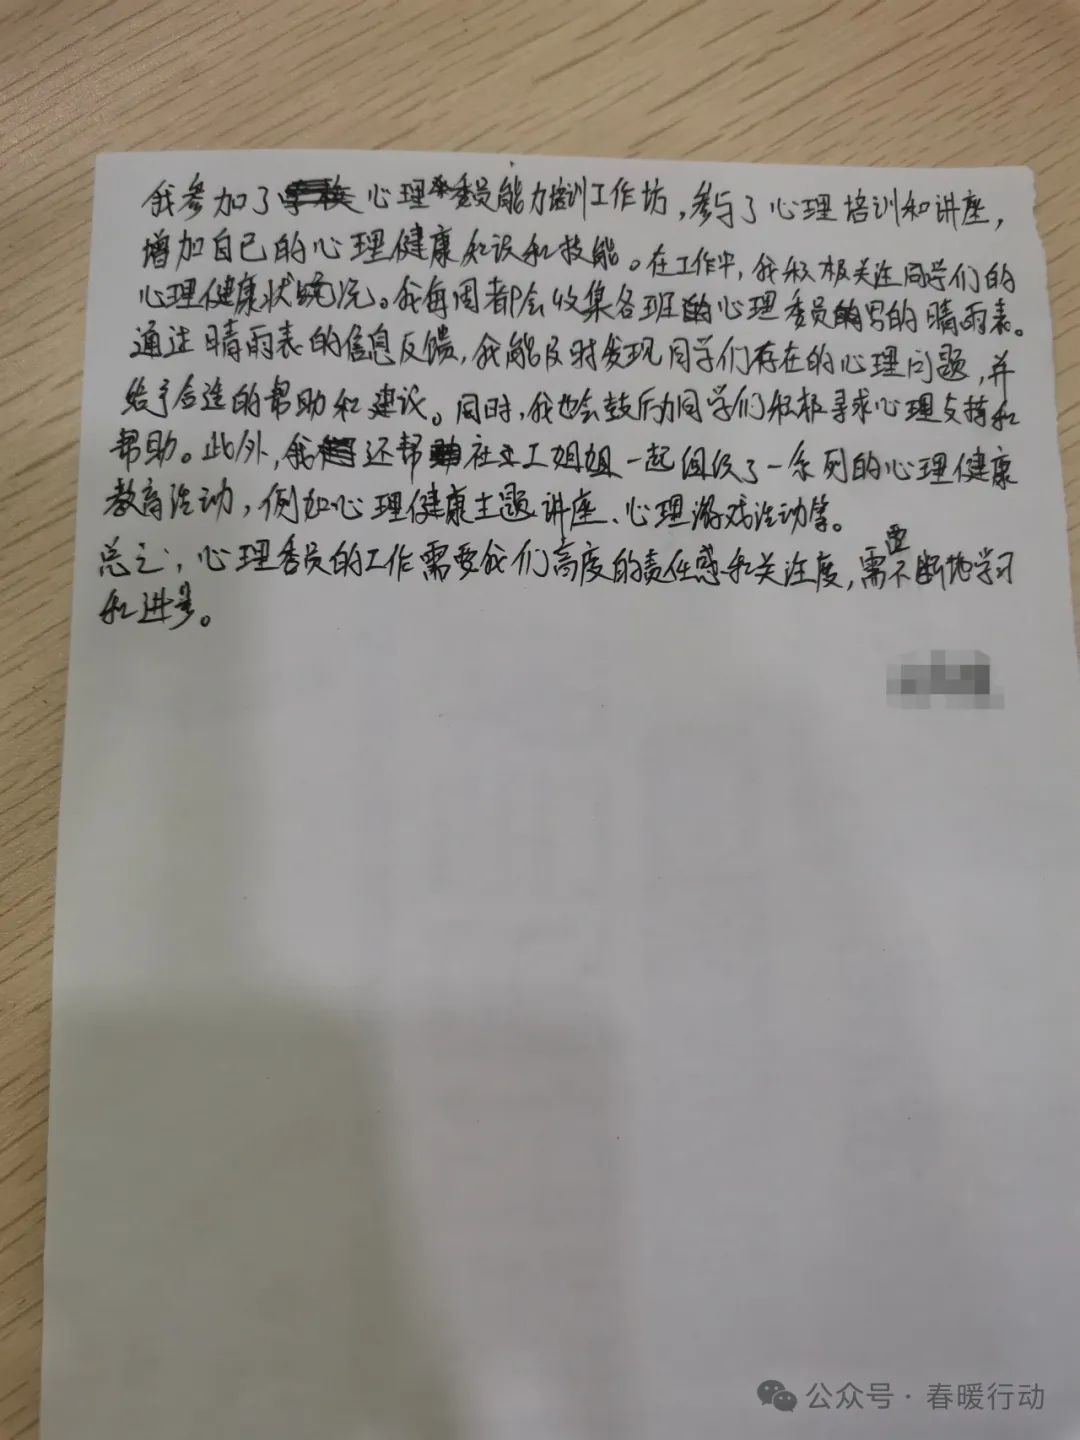 我参加了心理委员能力培训工作坊，参与了心理培训和讲座，
增加自己的心理健康知识和技能。在工作中，我积极关注同学们的
心理健康状况。我每周都会收集各班的心理委员的晴雨表。
通过晴雨表的信息反馈，我能及时发现同学们存在的心理问题，并
给予合适的帮助和建议。同时，我也会鼓励同学们积极寻求心理支持和
帮助。此外，我还帮社工姐姐一起组织了一系列的心理健康
教育活动，例如心理健康主题讲座、心理游戏活动等。
总之，心理委员的工作需要我们高度的责任感和关注度，需要不断地学习
和进步。
公众号·春暖行动